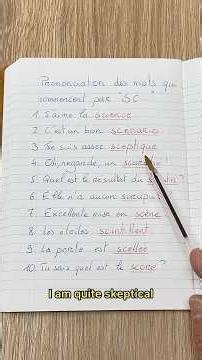 Prononciation des mots qui
commencent par "SC"
1. J'aime la science
2. C'est un bon scenario
3. Je suis assez sceptique
4. Oh, regarde, un
5. Quel est le résultat du scrutin?
6. Elle n'a aucun scrupule
7. Excellente mise en scène
8. Les étoiles scintillent
9. La porte est scellée
10. Tu sais quel est le score?
I am quite skeptical